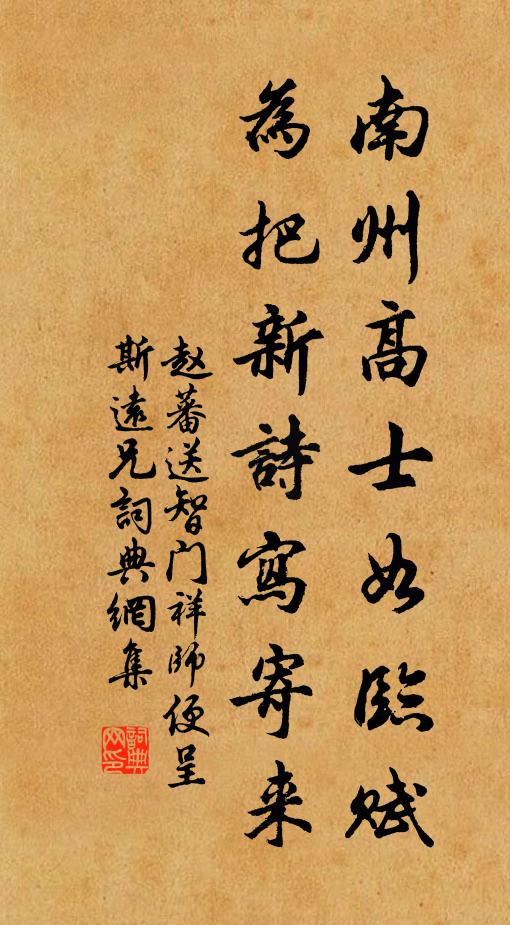 南州高士如臨賦
為把新詩寫寄来
赵蕃送智门祥師便呈
斯遠兄詞典網集
詞典
网印